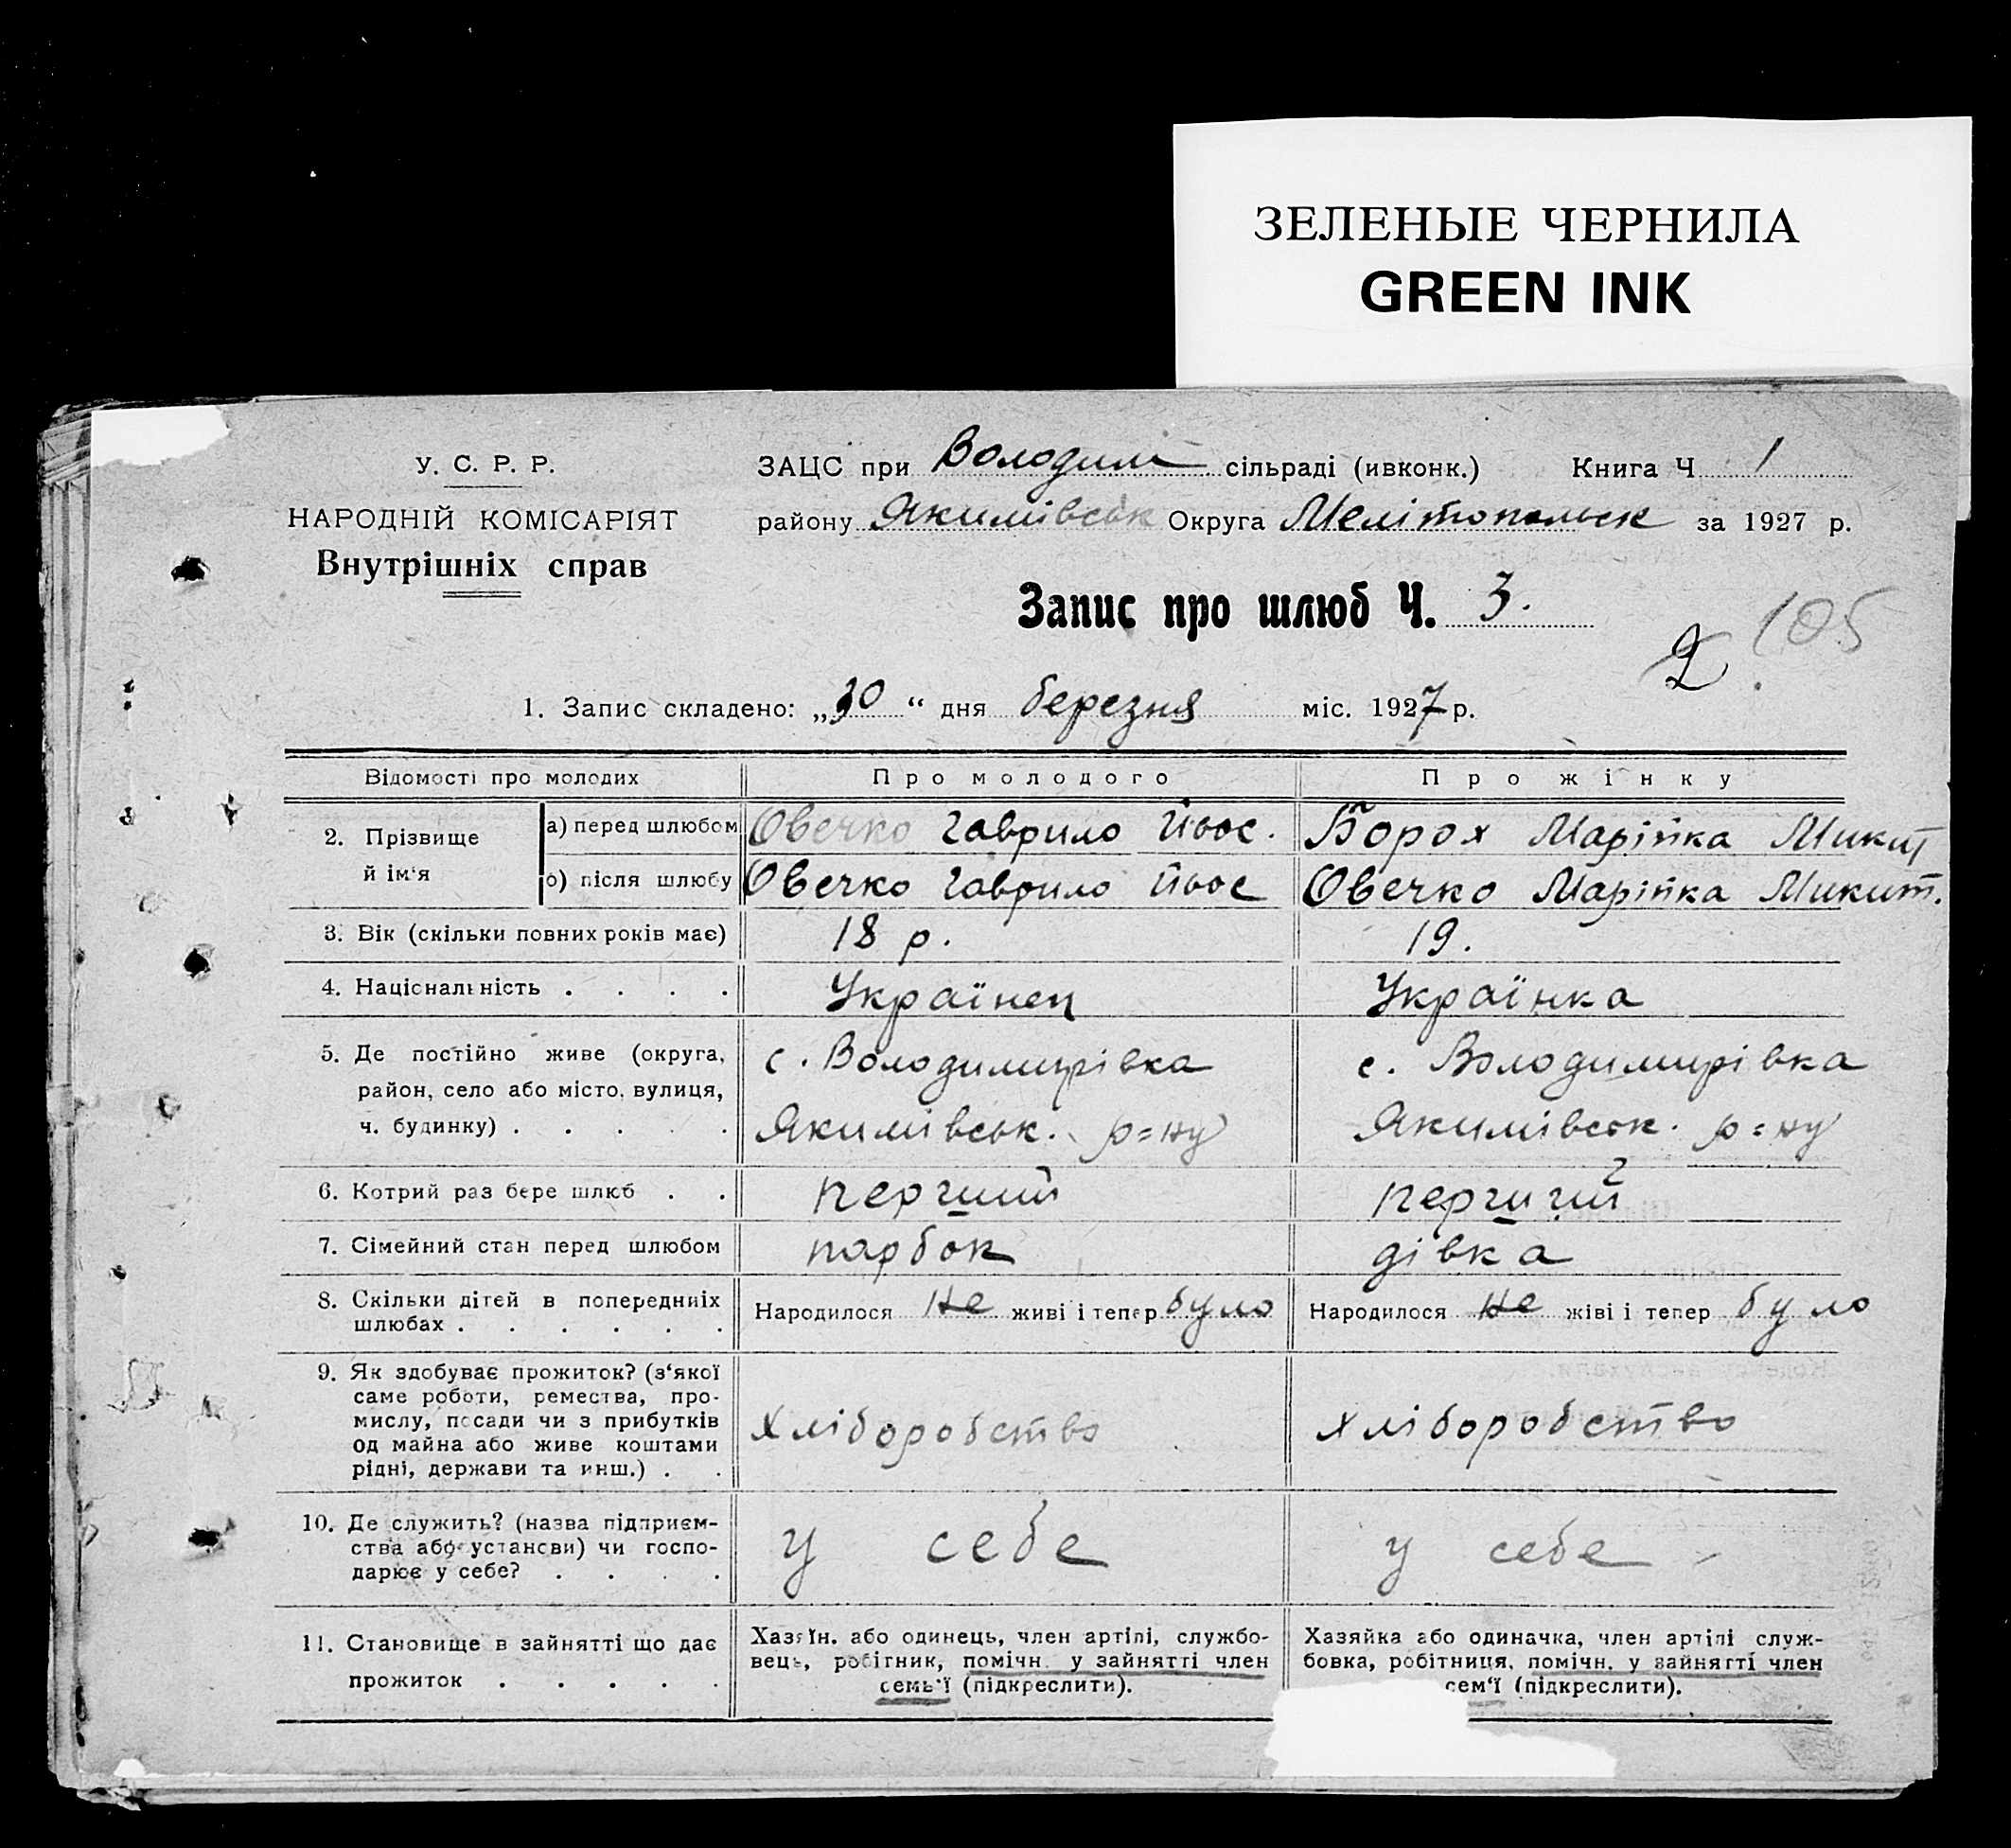 ЗЕЛЕНЫЕ ЧЕРНИЛА
GREEN INK
У. С. Р. Р.
НАРОДНІЙ КОМІСАРІЯТ
Внутрішніх справ
ЗАЦС при Володим сільраді (ивконк.) Книга Ч 1
району Якимівськ Округа Мелітопольск за 1927 р.
Запис про шлюб Ч. 3.
2. 105
1. Запис складено: „30“ дня березня міс. 1927 р.
Відомості про молодих Про молодого Про жінку
2. Прізвище й ім‘я
а) перед шлюбом Овечко Гаврило Йос. Борох Марійка Микит
б) після шлюбу Овечко Гаврило Йос Овечко Марійка Микит.
3. Вік (скільки повних років має) 18 р. 19.
4. Національність . . . . Українец Українка
5. Де постійно живе (округа, с. Володимирівка с. Володимирівка
район, село або місто, вулиця,
ч. будинку) . . . . . Якимівськ. р=ну Якимівськ. р=ну
6. Котрий раз бере шлюб . . перший перший
7. Сімейний стан перед шлюбом парбок дівка
8. Скільки дітей в попередниіх Народилося не живі і тепер було Народилося не жіві і тепер було
шлюбах . . . . . .
9. Як здобуває прожиток? (з‘якої
саме роботи, ремества, про-
мислу, посади чи з прибутків хліборобство хліборобство
од майна або живе коштами
рідні, держави та инш.) . .
10. Де служить? (назва підприєм-
ства або установи) чи госпо- у себе у себе
дарює у себе? . . . .
11. Становище в зайнятті що дає Хазяїн. або одинець, член артілі, службо- Хазяйка або одиначка, член артілі служ-
вець, робітник, помічн. у зайнятті член бовка, робітниця, помічн. у зайнятті член
прожиток . . . . . семь‘ї (підкреслити). сем‘ї (підкреслити).